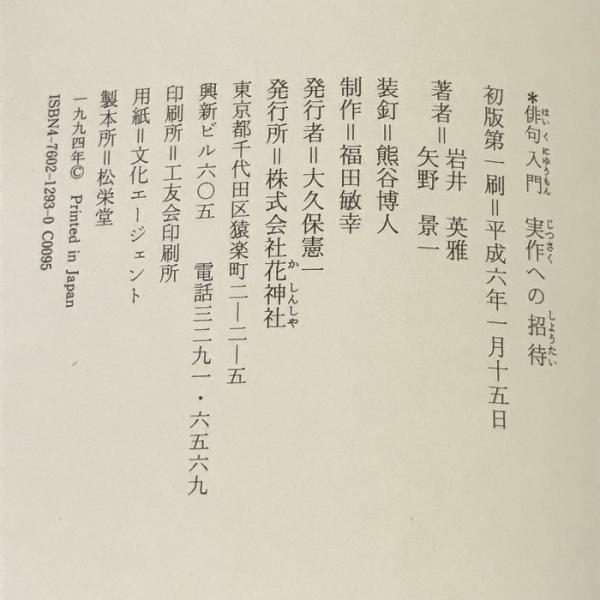 *俳句入門 実作への招待
はいくにゅうもん じつさく しょうたい
初版第一刷=平成六年一月十五日
著者=岩井 英雅
矢野 景一
装釘=熊谷博人
制作=福田敏幸
発行者=大久保憲一
発行所=株式会社花神社
かしんしや
東京都千代田区猿楽町二―二―五
興新ビル六〇五 電話三二九一・六五六九
印刷所=工友会印刷所
用紙=文化エージェント
製本所=松栄堂
一九九四年© Printed in Japan
ISBN4-7602-1293-0 C0095